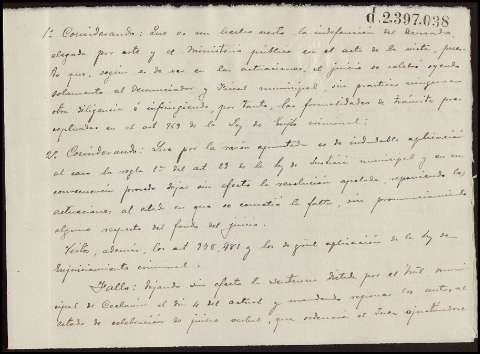 d.2397.038
1º Considerando: Que es un hecho cierto la indefensión del denunciado,
alegada por este y el Ministerio público en el acto de la vista, pues-
to que, según es de ver en las actuaciones, el juicio se celebró oyendo
solamente al denunciador y Fiscal municipal, sin practicar ninguna
otra diligencia é infringiendo, por tanto, las formalidades de trámite pre-
ceptuadas en el art 969 de la Ley de Enjto criminal;
2º Considerando: Que por la razón apuntada es de indudable aplicación
al caso la regla 1ª del art 23 de la ley de Justicia municipal y en su
consecuencia procede dejar sin efecto la resolución apelada, reponiendo las
actuaciones al estado en que se cometió la falta, sin pronunciamiento
alguno respecto del fondo del juicio.
Vistos, además, los art 978, 981 y los de gral aplicación de la ley de
Enjuiciamiento criminal.
Fallo: dejando sin efecto la sentencia dictada por el Tribl muni-
cipal de el día 4 del actual y mandando reponer los autos al
estado de celebración de juicio verbal, que ordenará el Juez ajustándose